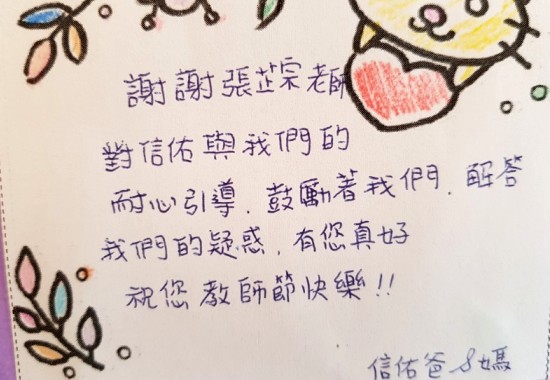 謝謝張芷宗老師
對信佑與我們的
耐心引導，鼓勵著我們，解答
我們的疑惑，有您真好
祝您教師節快樂!!
信佑爸&媽